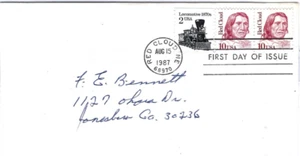 Locomotive 1870s
2 USA
Red Cloud
10 USA
Red Cloud
10 USA
RED CLOUD, NE
AUG 15
1987
68970
FIRST DAY OF ISSUE
F. E. Bennett
1127 Ohara Dr.
Jonesboro Ga. 30236